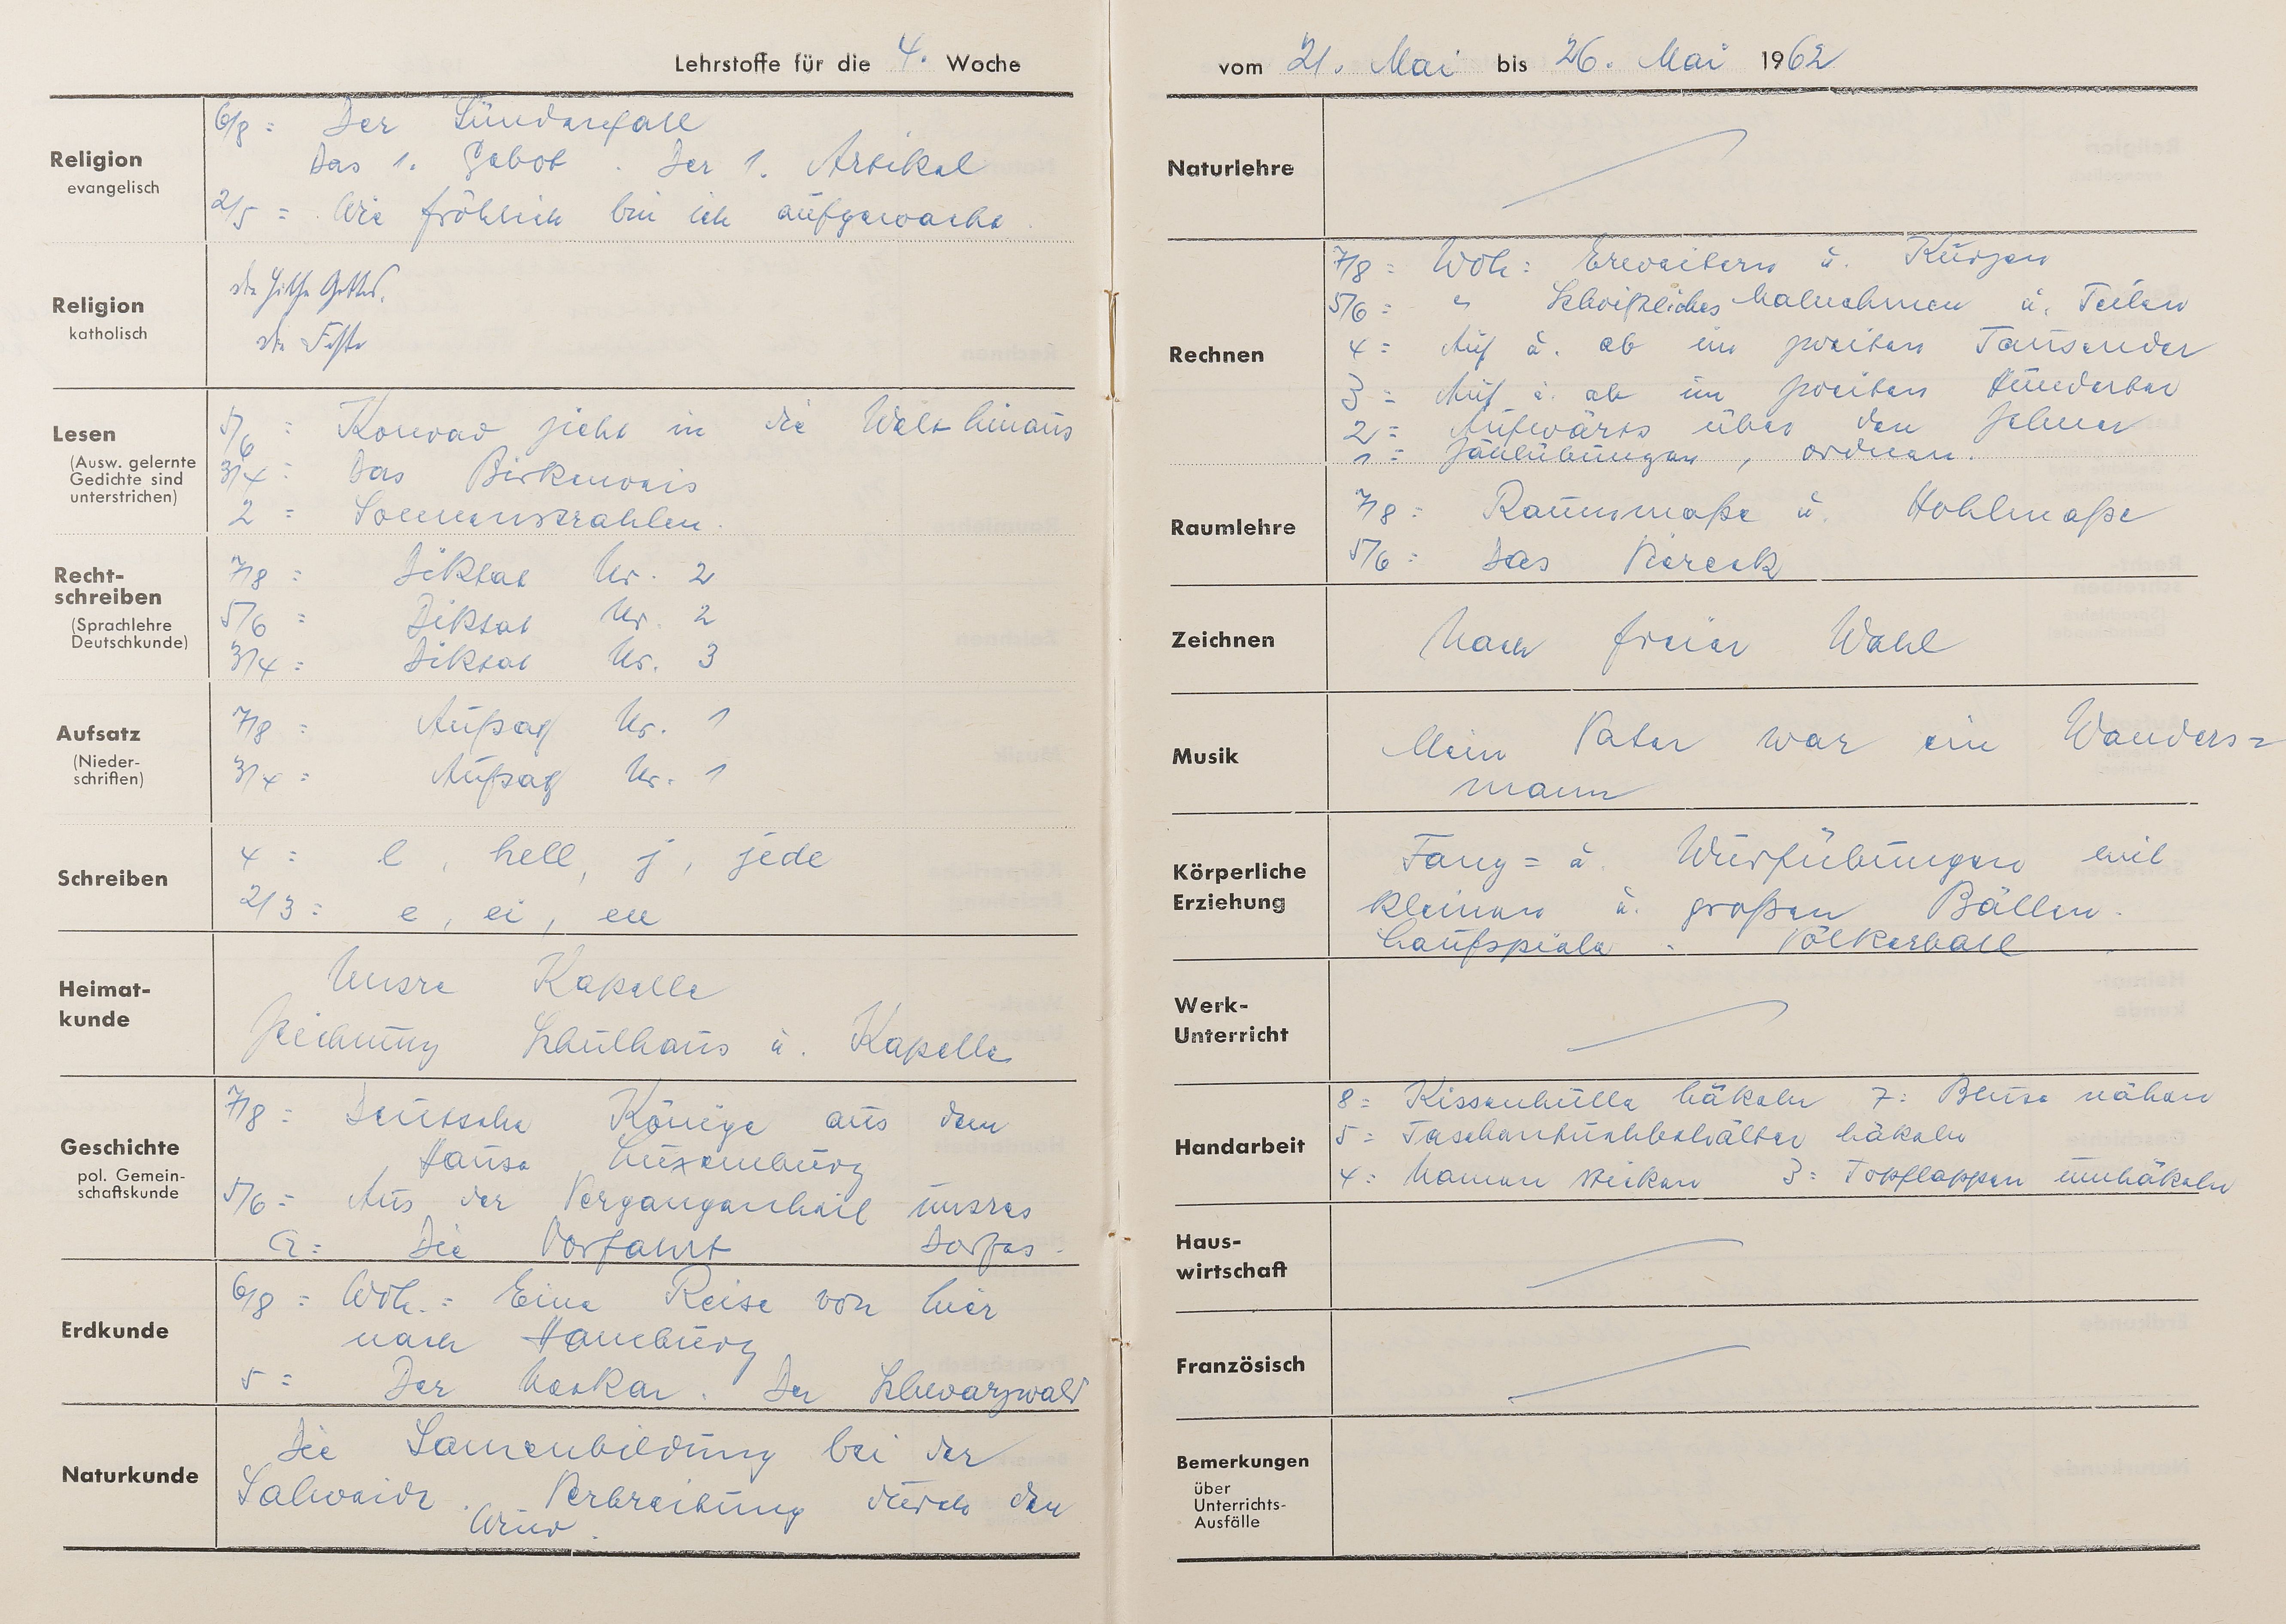 Lehrstoffe für die 4. Woche
Religion
evangelisch
6/8 = Der Sündenfall
Das 1. Gebot. Der 1. Artikel
2/5 = Wie fröhlich bin ich aufgewacht
Religion
katholisch
die Güte Gottes.
die Feste
Lesen
(Ausw. gelernte
Gedichte sind
unterstrichen)
5/6 = Konrad zieht in die Welt hinaus
3/4 = Das Birkenreis
2 = Sonnenstrahlen.
Recht-
schreiben
(Sprachlehre
Deutschkunde)
7/8 = Diktat Nr. 2
5/6 = Diktat Nr. 2
3/4 = Diktat Nr. 3
Aufsatz
(Nieder-
schriften)
7/8 = Aufsatz Nr. 1
3/4 = Aufsatz Nr. 1
Schreiben
4 = l, hell, j, jede
2/3 = e, ei, eu
Heimat-
kunde
Unsre Kapelle
Zeichnung Schulhaus u. Kapelle
Geschichte
pol. Gemein-
schaftskunde
7/8 = Deutsche Könige aus dem
Hause Luxemburg
5/6 = Aus der Vergangenheit unsres
G = Die Vorfahrt Dorfes.
Erdkunde
6/8 = Wdh. = Eine Reise von hier
nach Hamburg
5 = Der Neckar. Der Schwarzwald
Naturkunde
Die Samenbildung bei der
Salweide. Verbreitung durch den
Wind.
vom 21. Mai bis 26. Mai 1962
Naturlehre
Rechnen
7/8 = Wdh: Erweitern u. Kürzen
5/6 = " Schriftliches Malnehmen u. Teilen
4 = Auf u. ab im zweiten Tausender
3 = Auf u. ab im zweiten Hunderter
2 = Aufwärts über den Zehner
1 = Zählübungen, ordnen.
Raumlehre
7/8 = Raummaße u. Hohlmaße
5/6 = Das Viereck
Zeichnen
Nach freier Wahl
Musik
Mein Vater war ein Wanders=
mann
Körperliche
Erziehung
Fang= u. Wurfübungen mit
kleinen u. großen Bällen.
Laufspiele - Völkerball
Werk-
Unterricht
Handarbeit
8 = Kissenhülle häkeln 7 = Bluse nähen
5 = Taschentuchbehälter häkeln
4 = Namen sticken 3 = Topflappen umhäkeln
Haus-
wirtschaft
Französisch
Bemerkungen
über
Unterrichts-
Ausfälle